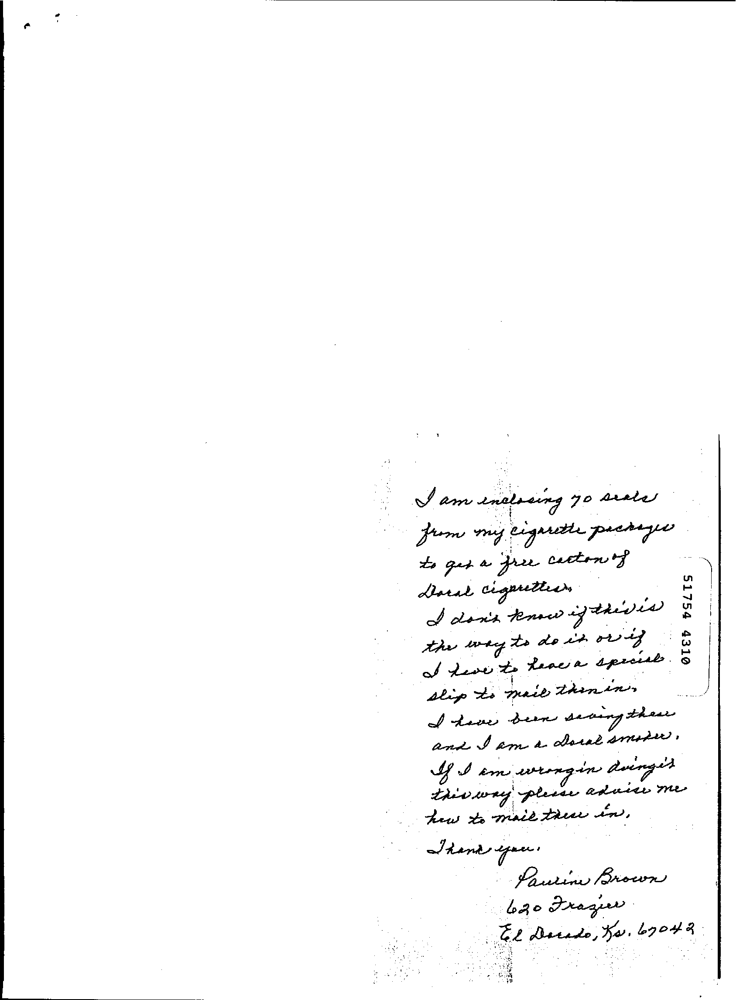 I am enclosing 70 seals
from my cigarette packages
to get a free carton of
Doral cigarettes.
I don't know if this is
the way to do it or if
I have to have a special
slip to mail them in.
I have been saving these
and I am a Doral smoker.
If I am wrong in doing it
this way please advise me
how to mail these in.
Thank you.
Pauline Brown
620 Frazier
El Dorado, Ks. 67042
51754 4310